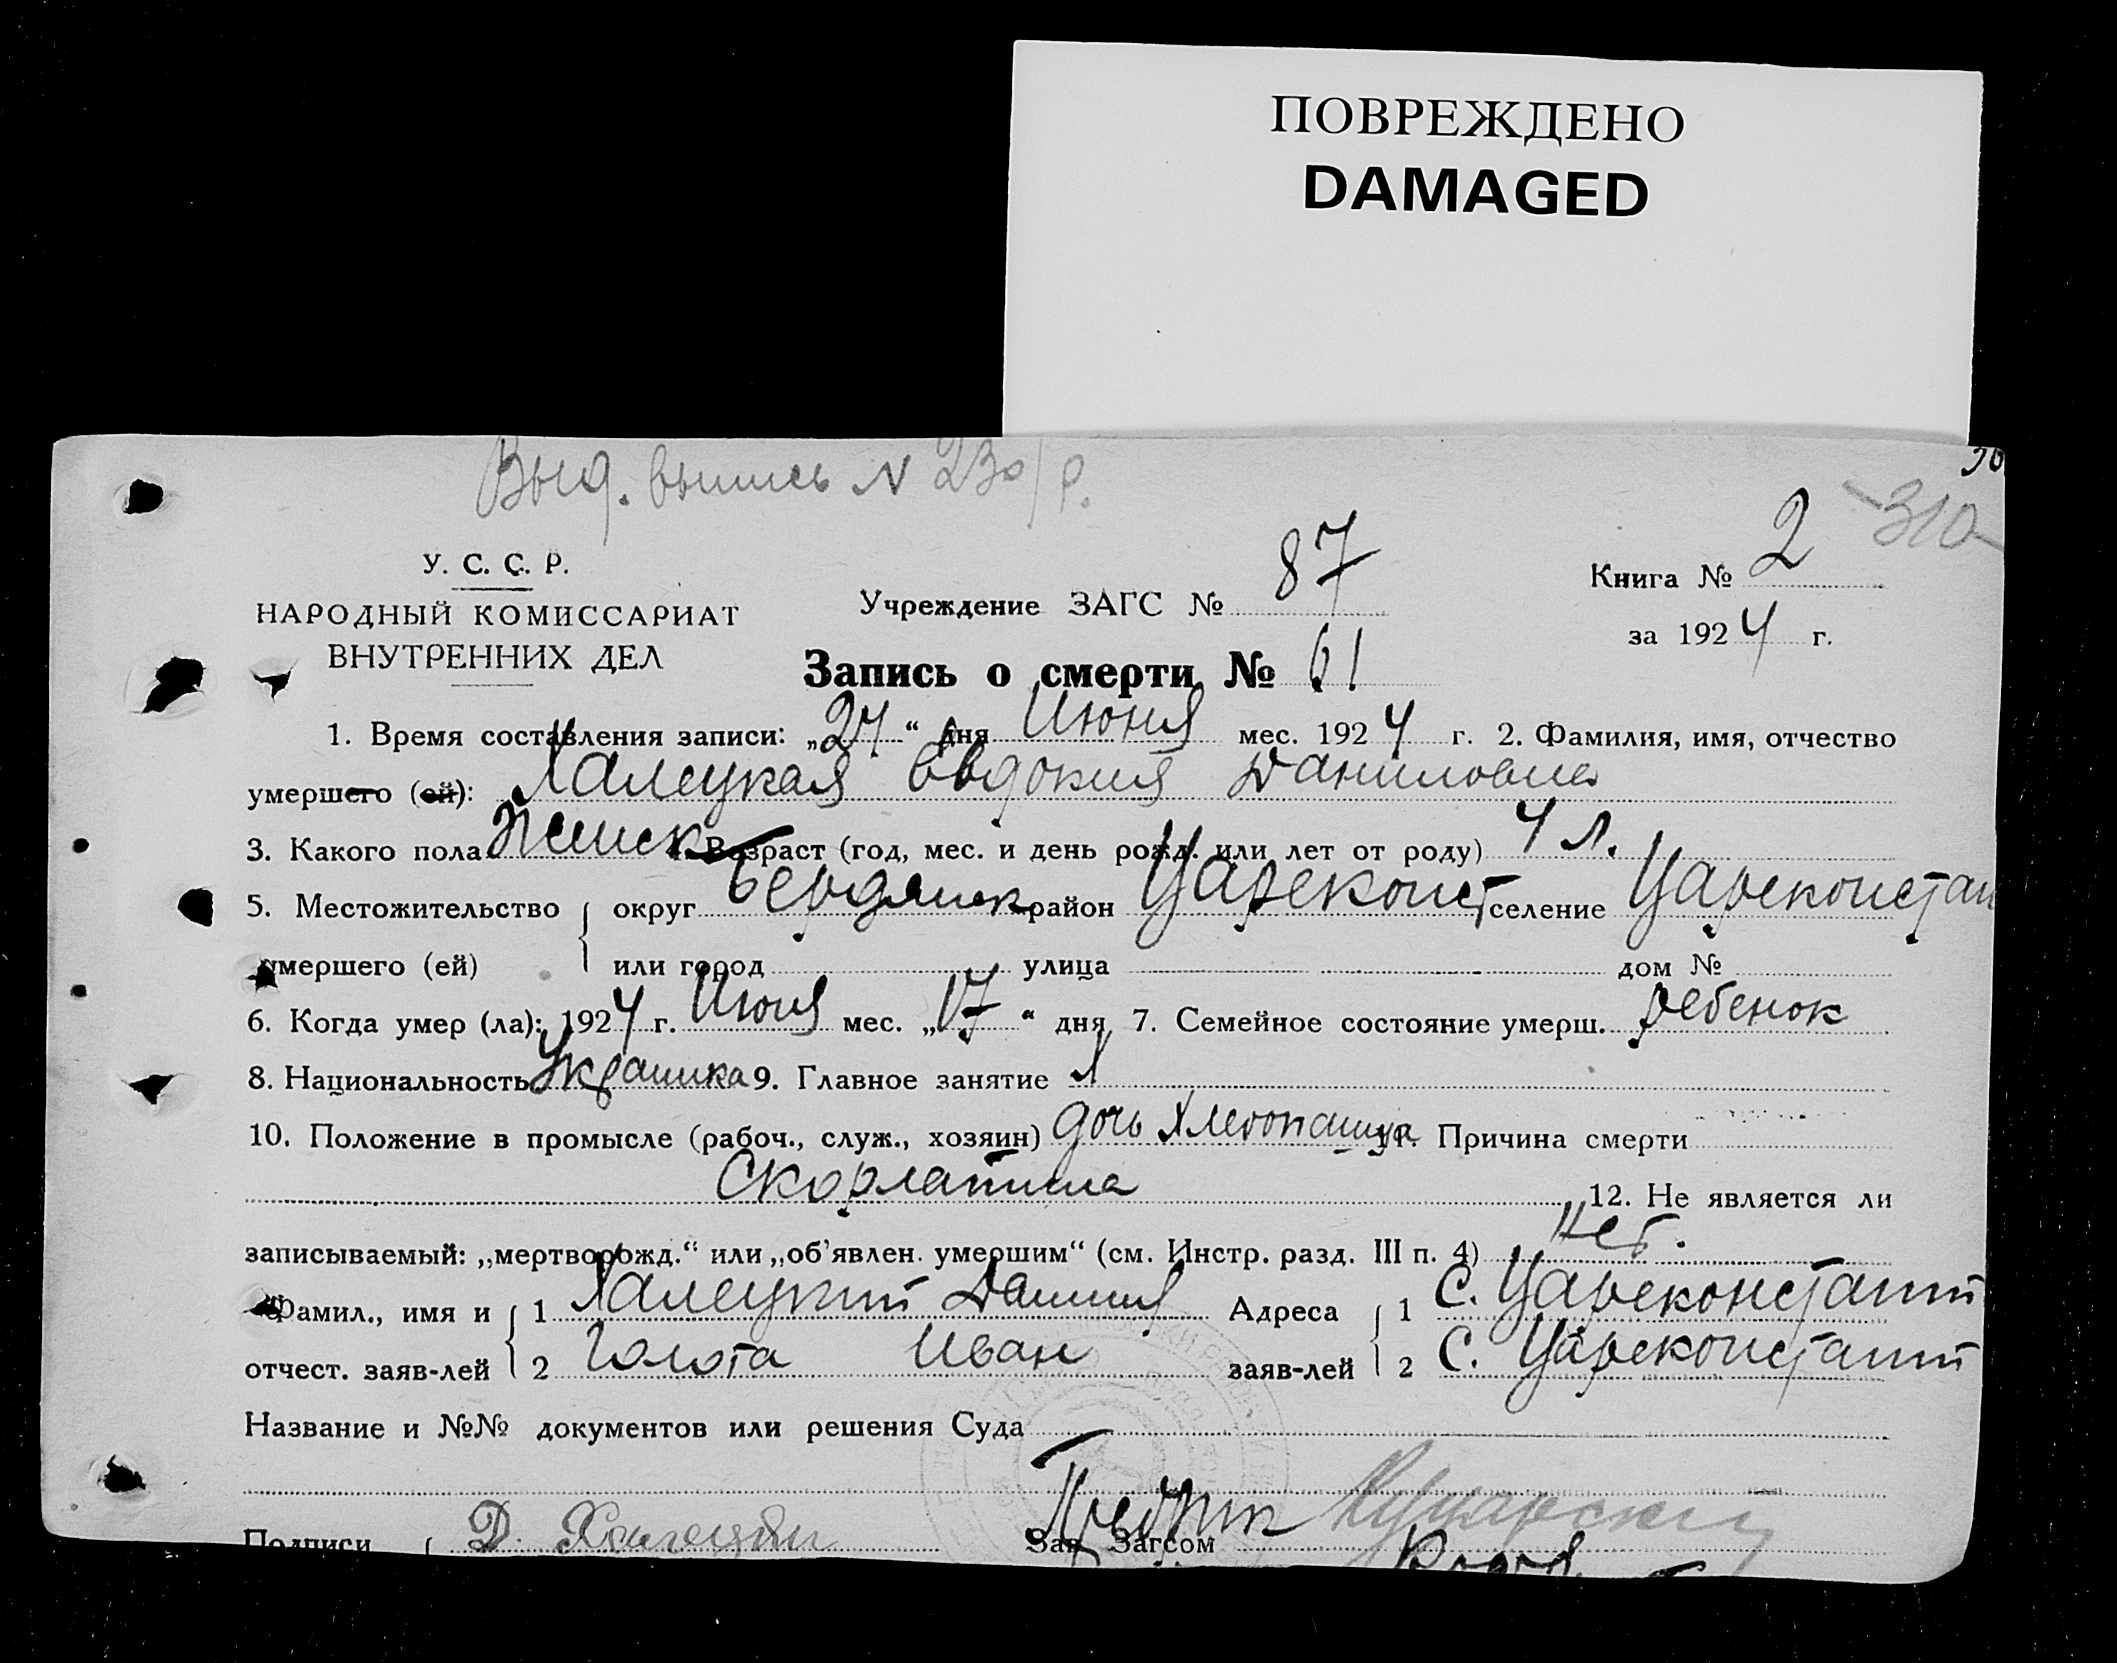 ПОВРЕЖДЕНО
DAMAGED
Выд. выпись N 230/р.
-310-
У. С. С. Р.
НАРОДНЫЙ КОМИССАРИАТ
ВНУТРЕННИХ ДЕЛ
Учреждение ЗАГС № 87
Книга № 2
за 1924 г.
Запись о смерти № 61
1. Время составления записи: „24“ дня Июня мес. 1924 г. 2. Фамилия, имя, отчество
умершего (ей): Халецкая Евдокия Даниловна
3. Какого пола Женск Возраст (год, мес. и день рожд. или лет от роду) 4 л.
5. Местожительство округ Бердянск район Цареконст селение Цареконстан
умершего (ей) или город улица дом №
6. Когда умер (ла): 1924 г. Июня мес. „17“ дня 7. Семейное состояние умерш. ребенок
8. Национальность Украинка 9. Главное занятие
10. Положение в промысле (рабоч., служ., хозяин) дочь хлебопашца 11. Причина смерти
Скорлатина 12. Не является ли
записываемый: „мертворожд.“ или „об'явлен. умершим“ (см. Инстр. разд. III п. 4) Нет.
Фамил., имя и 1 Халецкий Даниил Адреса 1 С. Цареконстант
отчест. заяв-лей 2 Голота Иван заяв-лей 2 С. Цареконстант
Название и №№ документов или решения Суда
Подписи Д. Халецкий Зав Загсом